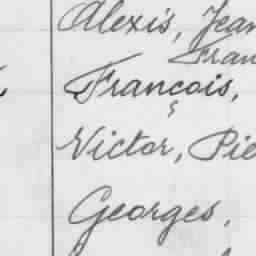 Alexis, Jean
Fran
François,
Victor, Pie
Georges,